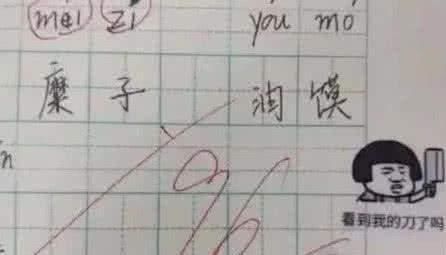 mei zi you mo
糜子 油馍
看到我的刀了吗